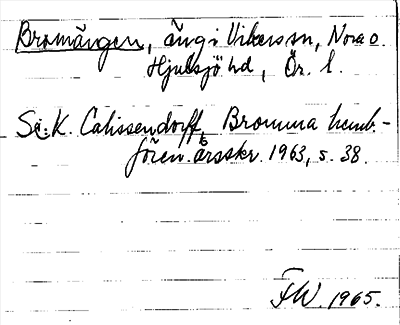 Bromängen, äng i Vikersn, Nora o.
Hjulsjö hd, Ör. l.
Se: K. Calissendorff, Bromma hemb.-
fören. årsskr. 1963, s. 38.
FW. 1965.